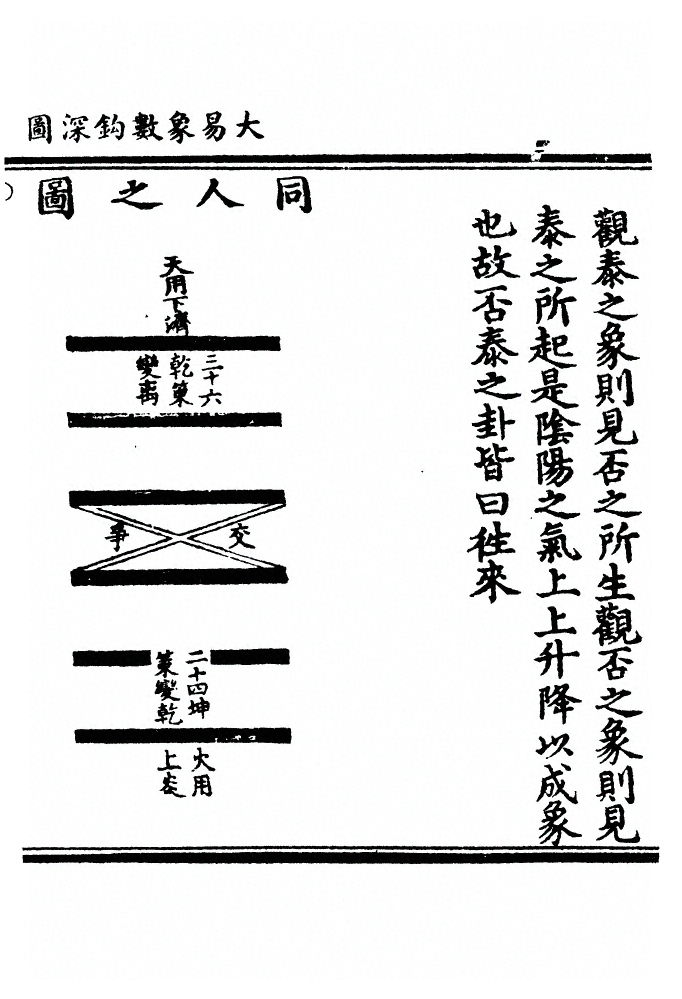 大易象數鈎深圖
觀泰之象則見否之所生觀否之象則見
泰之所起是陰陽之氣上上升降以成象
也故否泰之卦皆曰徃來
同人之圖
天用下濟
三十六
乾策
變离
交
爭
二十四坤
策變乾
火用
上炎